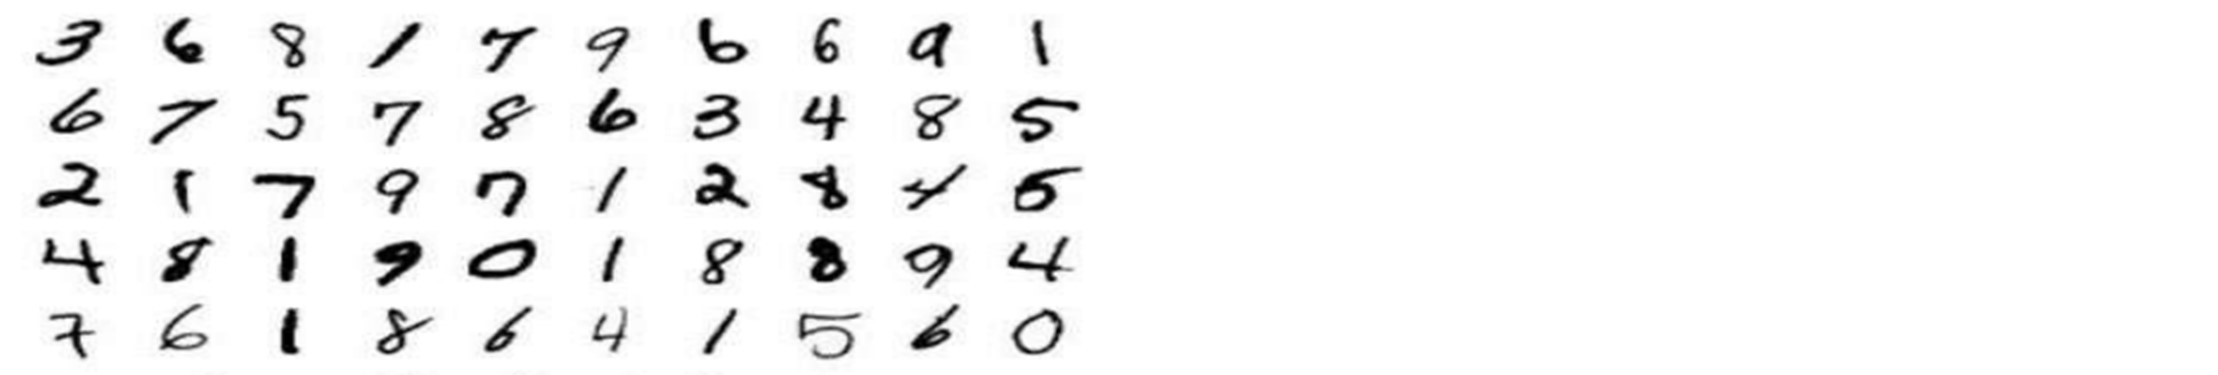 3 6 8 1 7 9 6 6 9 1
6 7 5 7 8 6 3 4 8 5
2 1 7 9 7 1 2 8 4 5
4 8 1 9 0 1 8 8 9 4
7 6 1 8 6 4 1 5 6 0